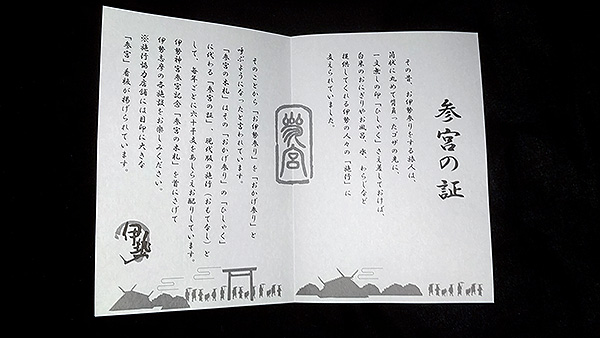 参宮の証
その昔、お伊勢参りをする旅人は、
筒状に丸めて背負ったゴザの先に、
一文無しの印「ひしゃく」さえ差しておけば、
白米のおにぎりやお風呂、水、わらじなど
提供してくれる伊勢の人々の「施行」に
支えられていました。
参宮
そのことから「お伊勢参り」を「おかげ参り」と
呼ぶようになったと言われています。
「参宮の木札」はその「おかげ参り」の「ひしゃく」
に代わる「参宮の証」、現代版の施行(おもてなし)と
して、毎年ごとに六十干支をあしらえお配りしています。
伊勢神宮参宮記念「参宮の木札」を首にさげて
伊勢志摩の各施設をお楽しみください。
※施行協力店舗には目印に大きな
「参宮」看板が掲げられています。
伊勢